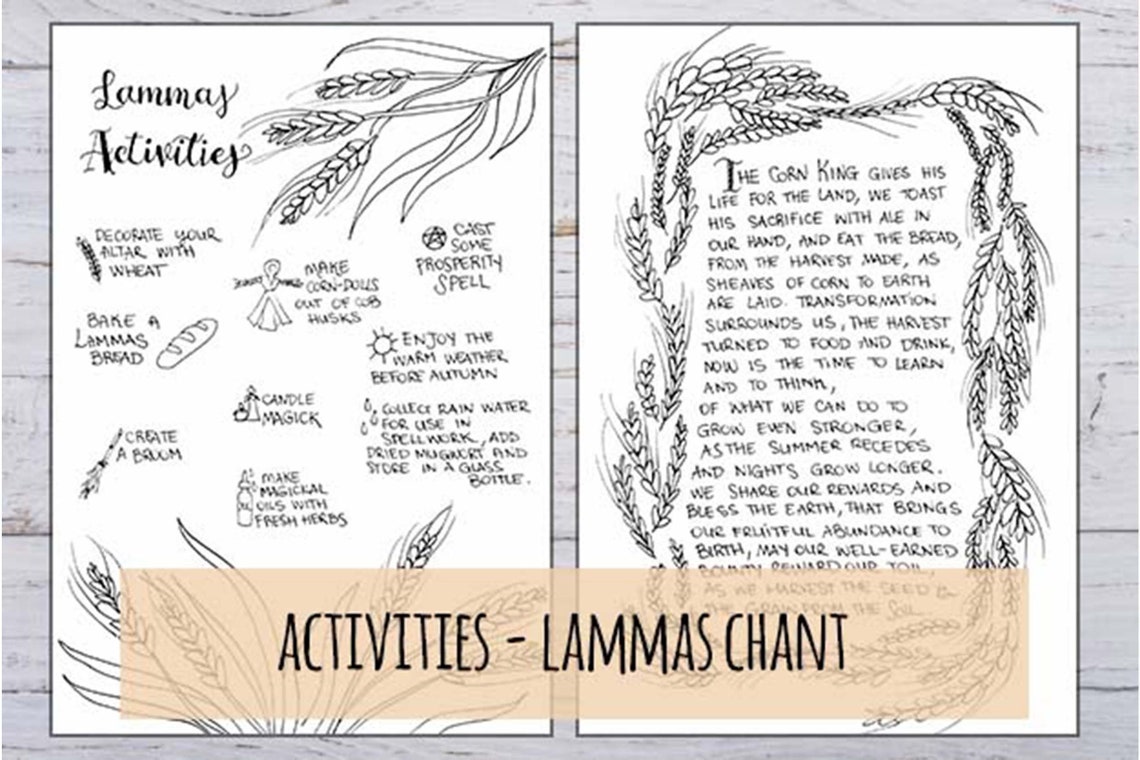 Lammas
Activities
DECORATE YOUR
ALTAR WITH
WHEAT
MAKE
CORN-DOLLS
OUT OF COB
HUSKS
CAST
SOME
PROSPERITY
SPELL
BAKE A
LAMMAS
BREAD
ENJOY THE
WARM WEATHER
BEFORE AUTUMN
CANDLE
MAGICK
COLLECT RAIN WATER
FOR USE IN
SPELLWORK, ADD
DRIED MUGWORT AND
STORE IN A GLASS
BOTTLE.
CREATE
A BROOM
MAKE
MAGICKAL
OILS WITH
FRESH HERBS
THE CORN KING GIVES HIS
LIFE FOR THE LAND, WE TOAST
HIS SACRIFICE WITH ALE IN
OUR HAND, AND EAT THE BREAD,
FROM THE HARVEST MADE, AS
SHEAVES OF CORN TO EARTH
ARE LAID. TRANSFORMATION
SURROUNDS US, THE HARVEST
TURNED TO FOOD AND DRINK,
NOW IS THE TIME TO LEARN
AND TO THINK,
OF WHAT WE CAN DO TO
GROW EVEN STRONGER,
AS THE SUMMER RECEDES
AND NIGHTS GROW LONGER.
WE SHARE OUR REWARDS AND
BLESS THE EARTH, THAT BRINGS
OUR FRUITFUL ABUNDANCE TO
BIRTH, MAY OUR WELL-EARNED
BOUNTY REWARD OUR TOIL,
AS WE HARVEST THE SEED
THE GRAIN FROM THE SOIL
ACTIVITIES - LAMMAS CHANT